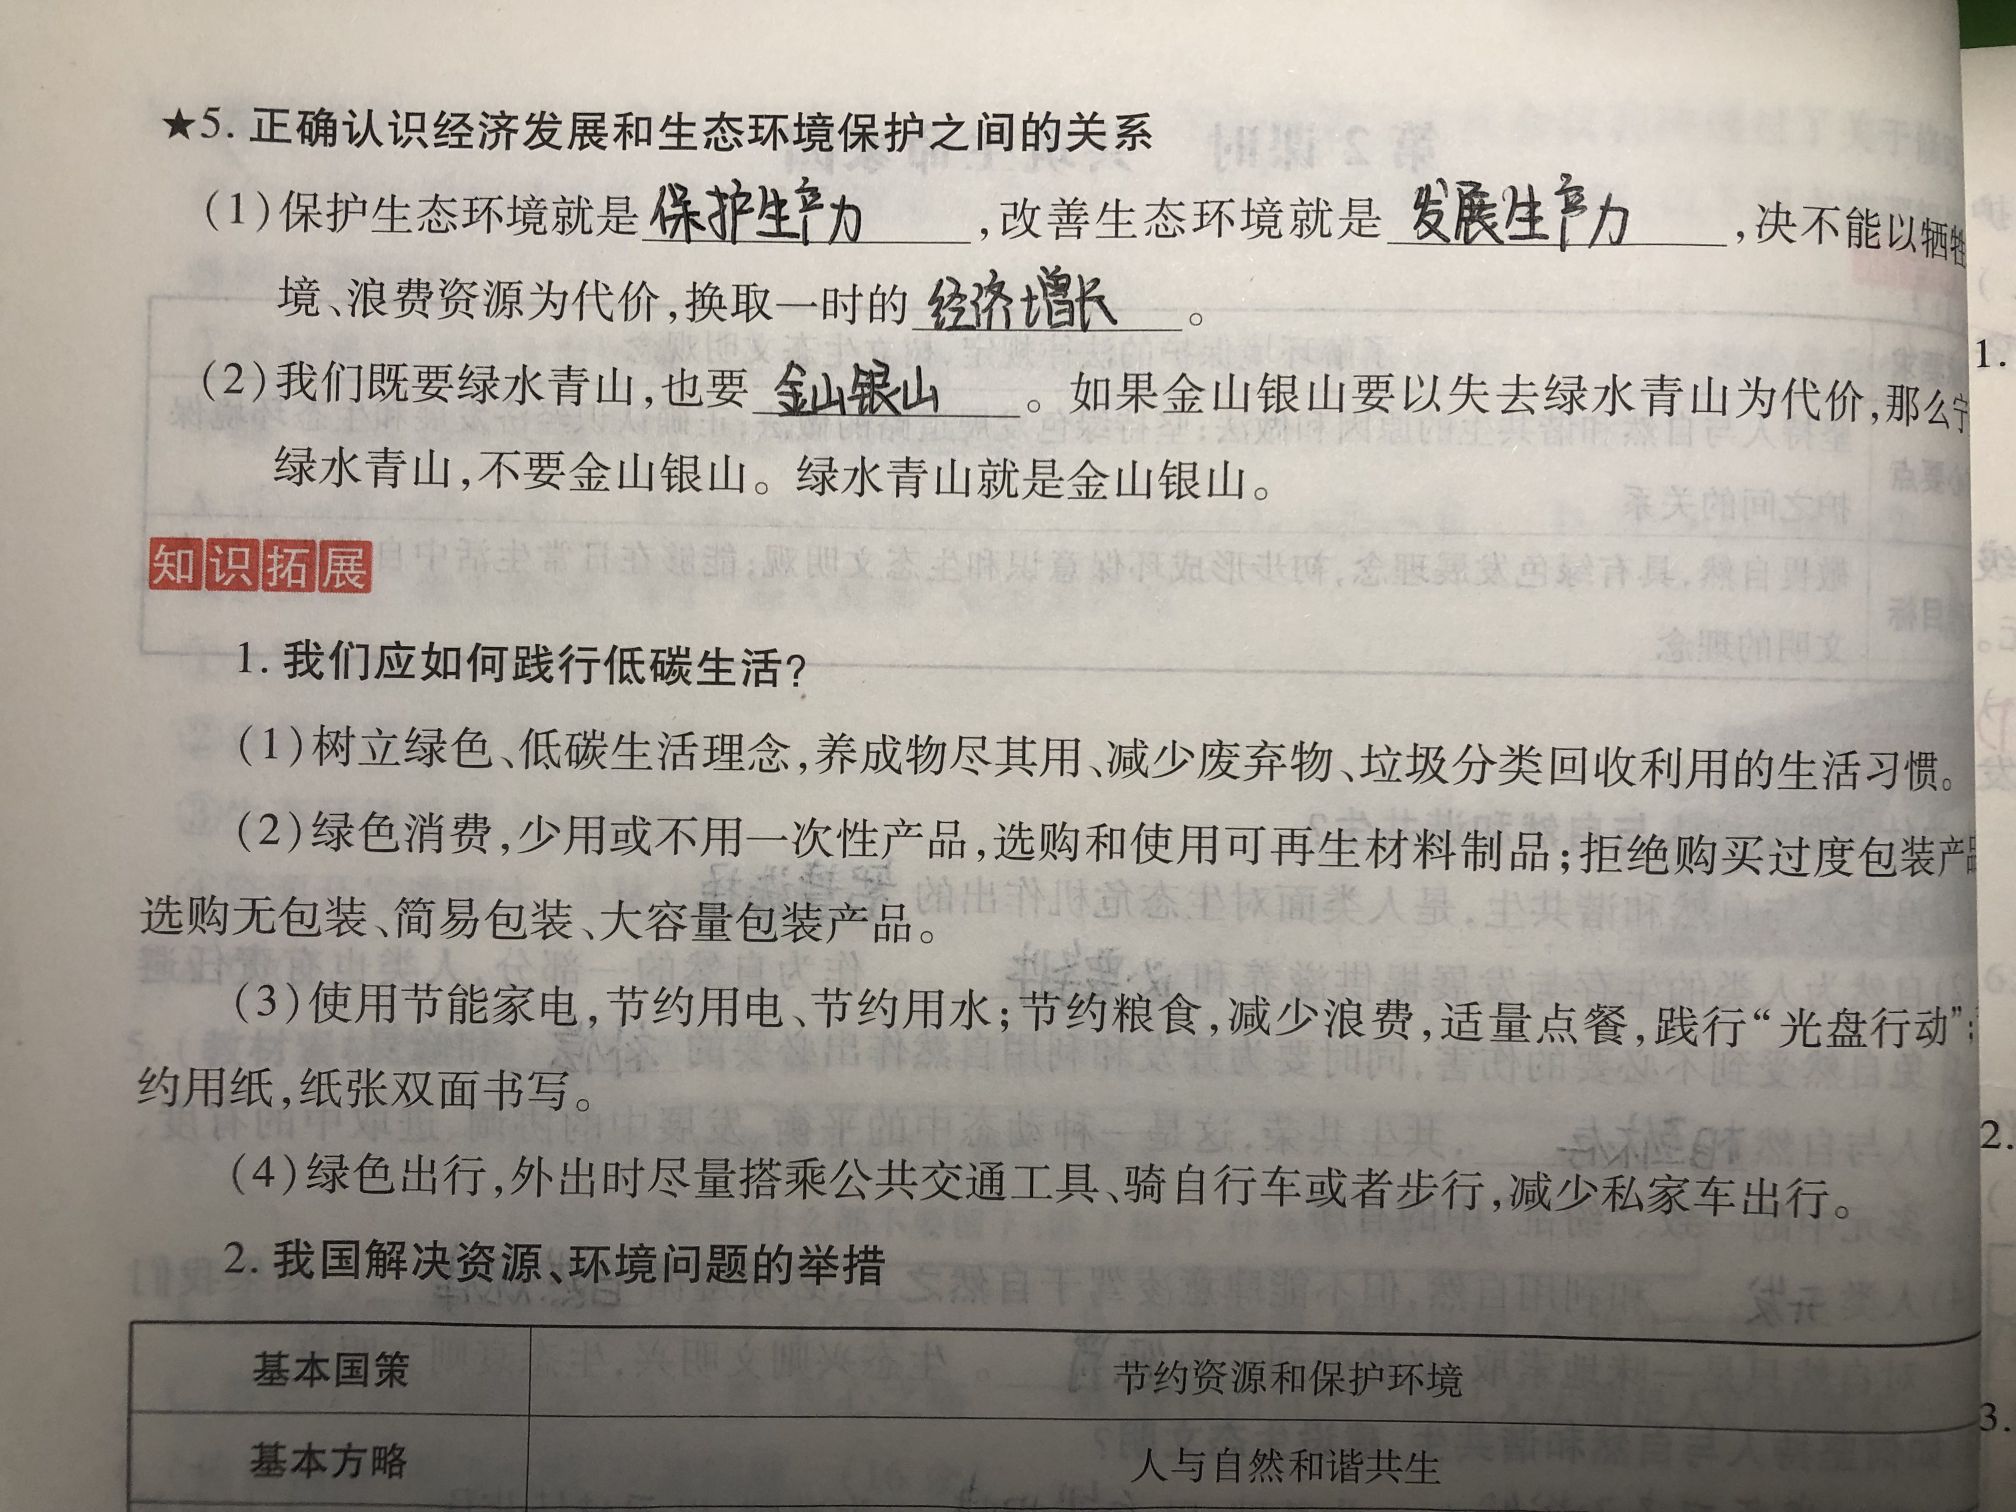 ★5. 正确认识经济发展和生态环境保护之间的关系
(1)保护生态环境就是保护生产力,改善生态环境就是发展生产力,决不能以牺牲
境、浪费资源为代价,换取一时的经济增长。
(2)我们既要绿水青山,也要金山银山。如果金山银山要以失去绿水青山为代价,那么宁
绿水青山,不要金山银山。绿水青山就是金山银山。
知识拓展
1. 我们应如何践行低碳生活?
(1)树立绿色、低碳生活理念,养成物尽其用、减少废弃物、垃圾分类回收利用的生活习惯。
(2)绿色消费,少用或不用一次性产品,选购和使用可再生材料制品;拒绝购买过度包装产品
选购无包装、简易包装、大容量包装产品。
(3)使用节能家电,节约用电、节约用水;节约粮食,减少浪费,适量点餐,践行“光盘行动”;
约用纸,纸张双面书写。
(4)绿色出行,外出时尽量搭乘公共交通工具、骑自行车或者步行,减少私家车出行。
2. 我国解决资源、环境问题的举措
基本国策 节约资源和保护环境
基本方略 人与自然和谐共生
1.
2.
3.